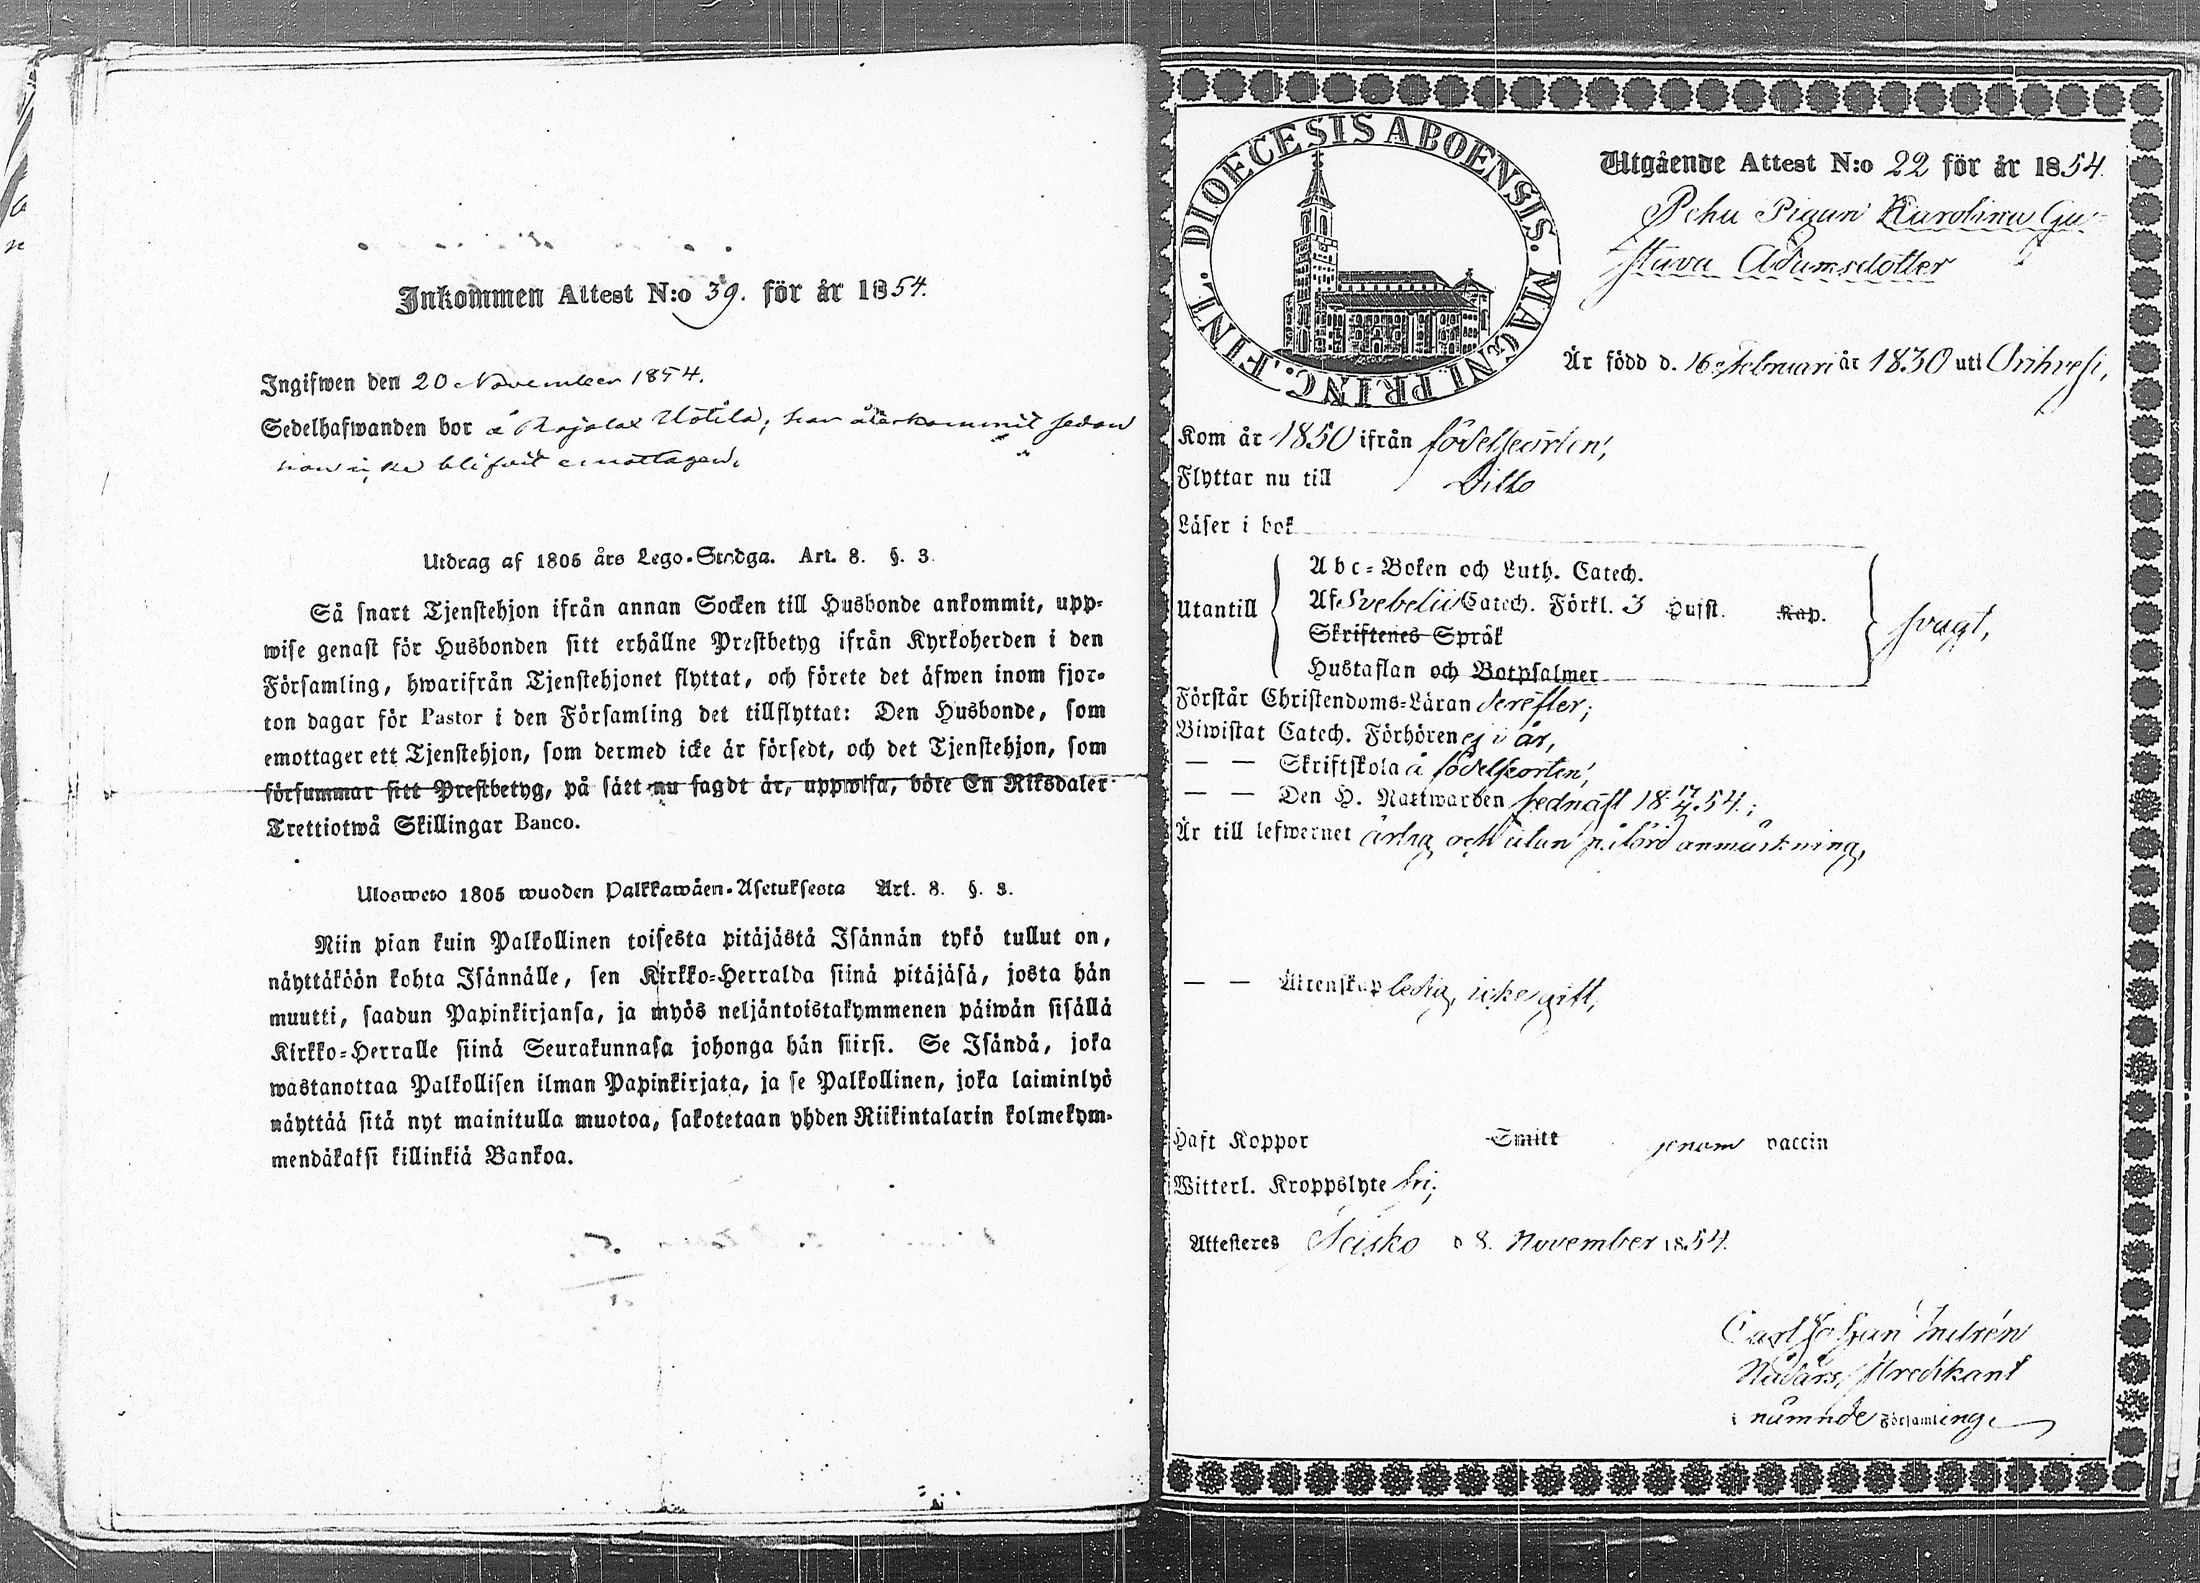 Inkommen Attest N:o 39. för år 1854.
Ingifwen den 20 November 1854.
Sedelhafwanden bor å Rajalax Uotila; har återkommit sedan
hon icke blifvit emottagen.
Utdrag af 1805 års Lego-Stadga. Art. 8. §. 3.
Så snart Tjenstehjon ifrån annan Socken till Husbonde ankommit, upp-
wise genast för Husbonden sitt erhållne Prestbetyg ifrån Kyrkoherden i den
Församling, hwarifrån Tjenstehjonet flyttat, och förete det äfwen inom fjor-
ton dagar för Pastor i den Församling det tillflyttat: Den Husbonde, som
emottager ett Tjenstehjon, som dermed icke är försedt, och det Tjenstehjon, som
försummar sitt Prestbetyg, på sätt nu sagdt är, uppwisa, böte En Riksdaler
Trettiotwå Skillingar Banco.
Ulosweto 1805 wuoden Palkkawäen-Asetuksesta Art. 8. §. 3.
Niin pian kuin Palkollinen toisesta pitäjästä Isännän tykö tullut on,
näyttäköön kohta Isännälle, sen Kirkko-Herralda siinä pitäjäsä, josta hän
muutti, saadun Papinkirjansa, ja myös neljäntoistakymmenen päiwän sisällä
Kirkko-Herralle siinä Seurakunnasa johonga hän siirsi. Se Isändä, joka
wastanottaa Palkollisen ilman Papinkirjata, ja se Palkollinen, joka laiminlyö
näyttää sitä nyt mainitulla muotoa, sakotetaan yhden Riikintalarin kolmekym-
mendäkaksi killinkiä Bankoa.
DIOECESIS ABOENSIS. MAGNI PRINC. FINL.
Utgående Attest N:o 22 för år 1854.
Pehu Pigan Karolina Gu-
stava Adamsdotter
Är född d. 16 Februari år 1830 uti Orihvesi,
Kom år 1850 ifrån födelseorten;
Flyttar nu till Ditto
Läser i bok
Utantill
Abc-Boken och Luth. Catech.
Af Svebelii Catech. Förkl. 3 Hufst. Kap.
Skriftenes Språk
Hustaflan och Botpsalmer
svagt,
Förstår Christendoms-Läran derefter;
Biwistat Catech. Förhören ej i år,
— — Skriftskola å födelseorten;
— — Den H. Nattwarden sednast 18 17/4 54.;
Är till lefwernet ärlig och utan påförd anmärkning,
— — Äktenskap ledig, icke gift,
Haft Koppor Smitt genom vaccin
Witterl. Kroppslyte fri;
Attesteres Kisko d 8. November 1854.
Carl Johan
Nådårs Predikant
i nämnde Församling.